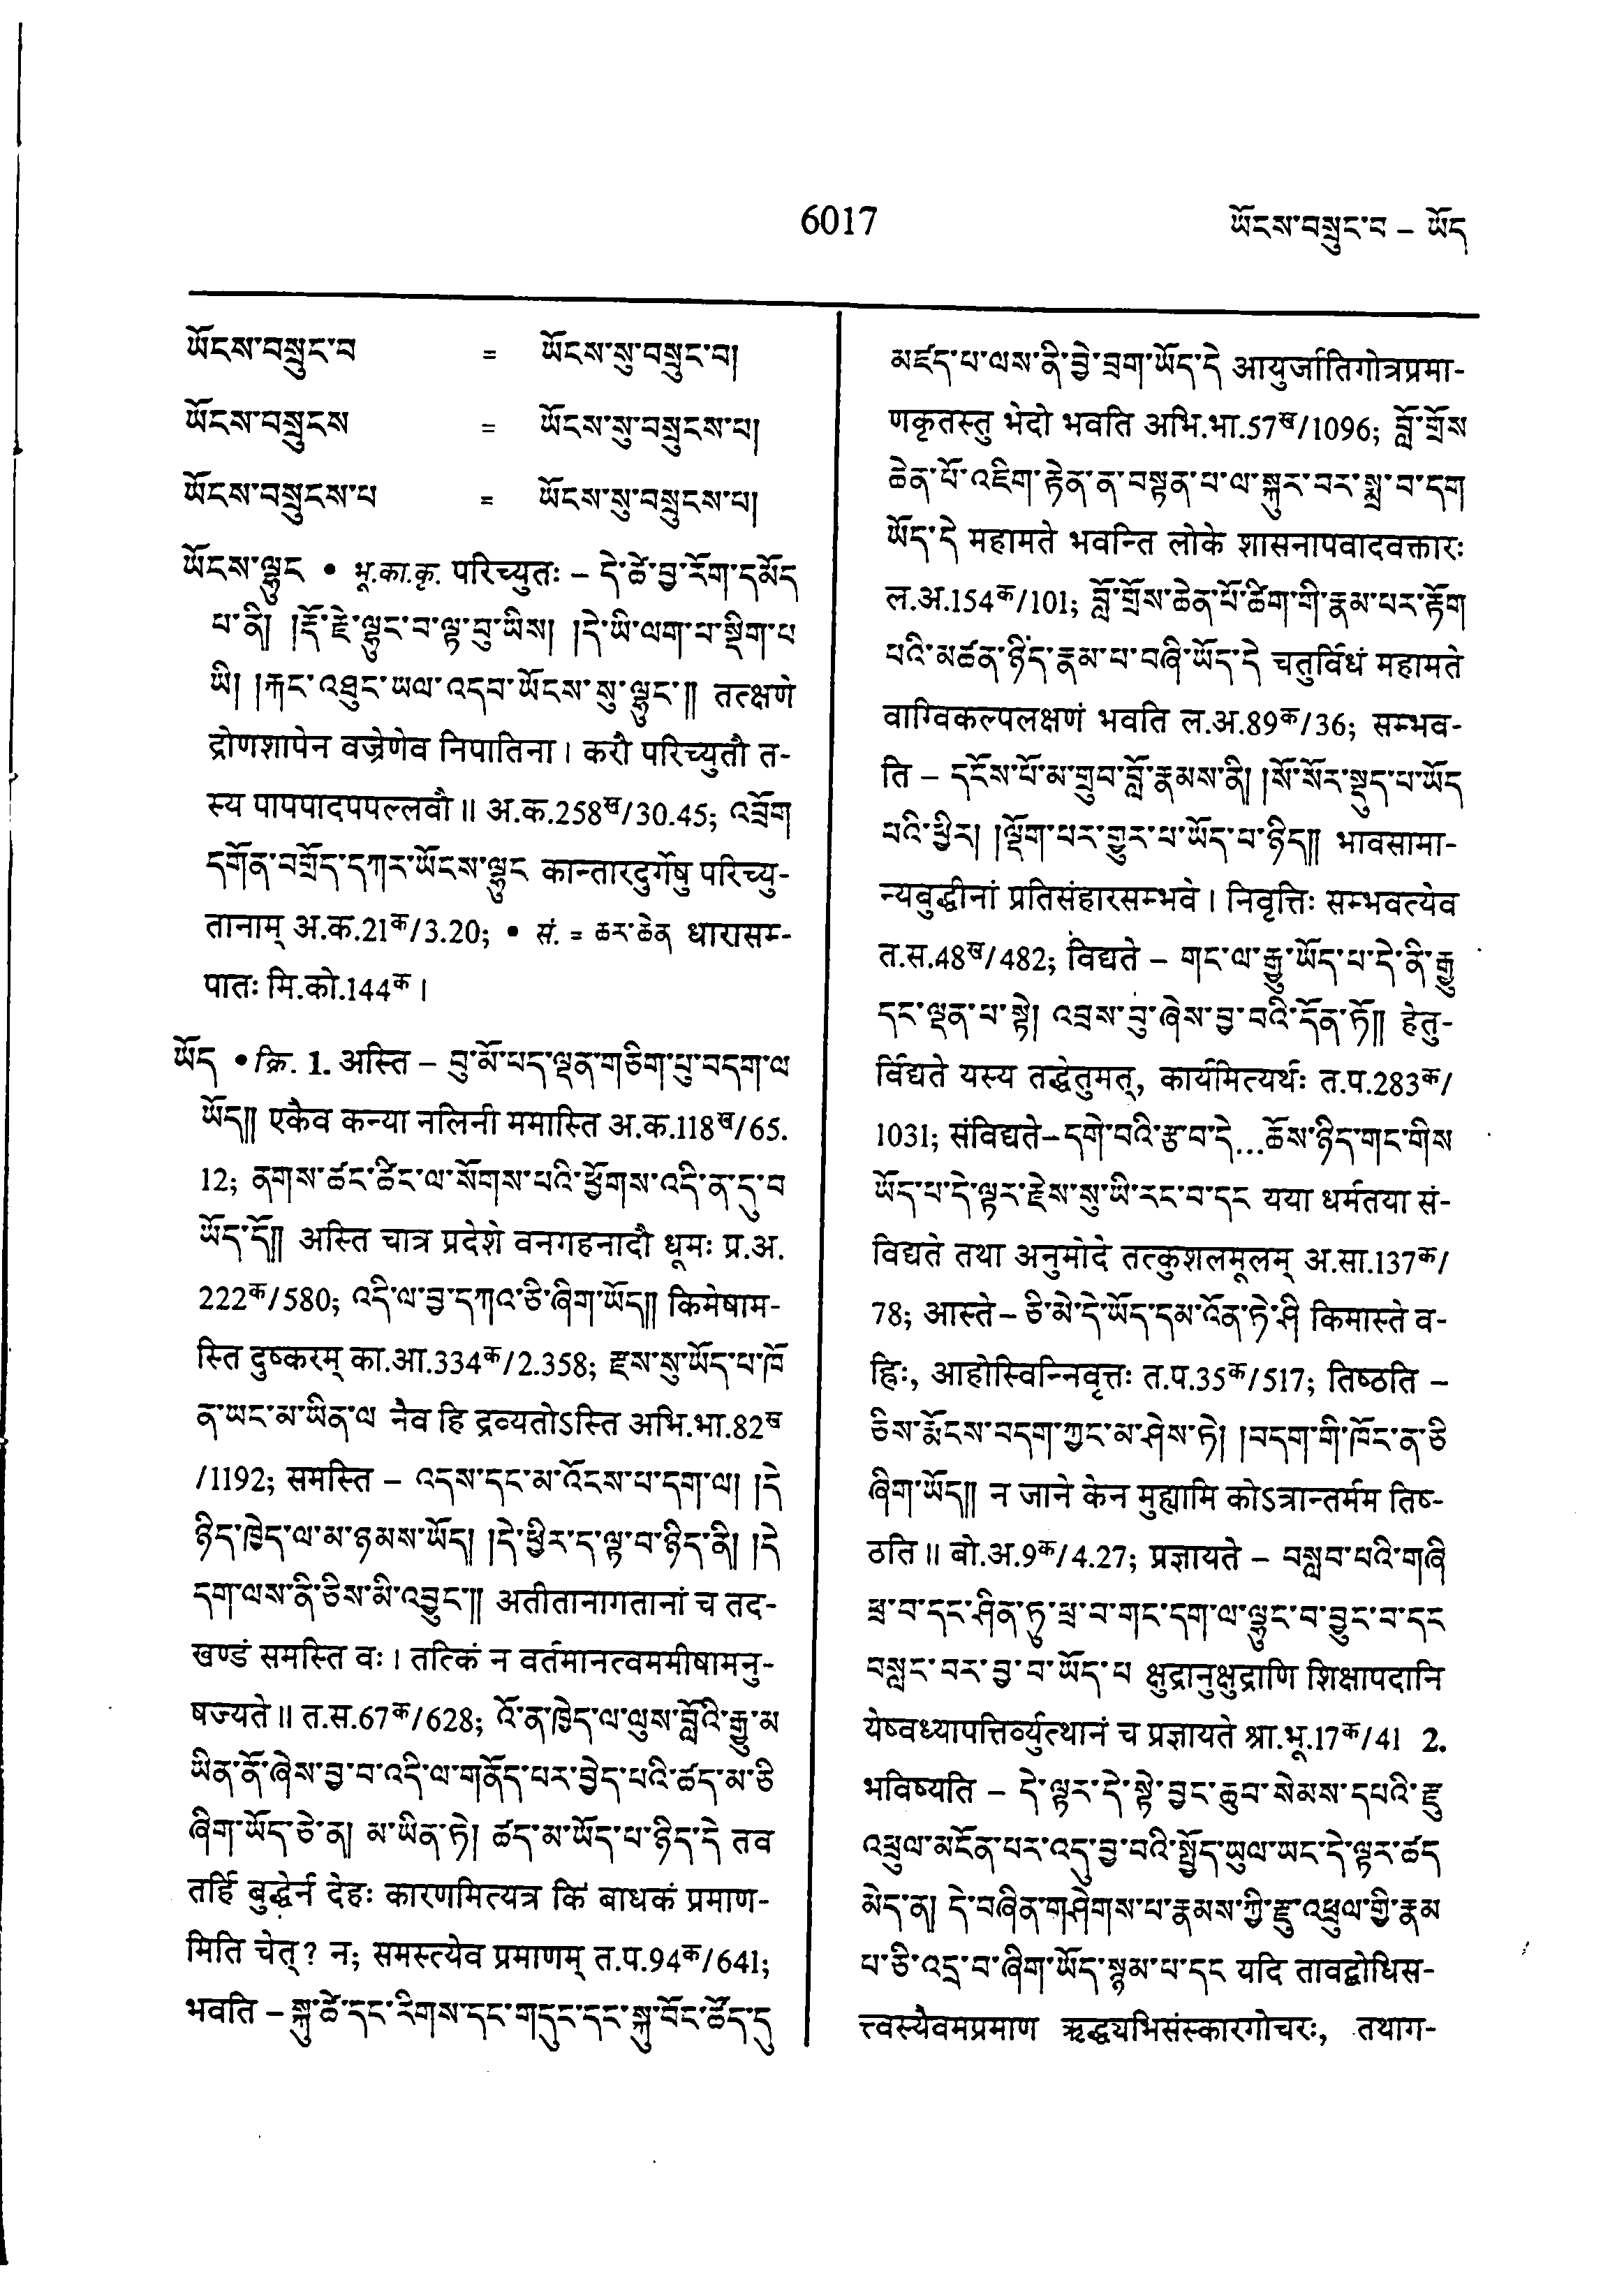 6017
ཡོངས་བསྲུང་བ – ཡོད
ཡོངས་བསྲུང་བ = ཡོངས་སུ་བསྲུང་བ།
ཡོངས་བསྲུངས = ཡོངས་སུ་བསྲུངས་པ།
ཡོངས་བསྲུངས་པ = ཡོངས་སུ་བསྲུངས་པ།
ཡོངས་ལྷུང • भू.का.कृ. परिच्युतः – དེ་ཚེ་བྱ་རོག་དམོད
པ་ནི། །རྡོ་རྗེ་ལྷུང་བ་ལྟ་བུ་ཡིས། །དེ་ཡི་ལག་པ་སྡིག་པ
ཡི། །རྐང་འཐུང་ཡལ་འདབ་ཡོངས་སུ་ལྷུང་༎ तत्क्षणे
द्रोणशापेन वज्रेणेव निपातिना । करौ परिच्युतौ त-
स्य पापपादपपल्लवौ ॥ अ.क.258ख/30.45; འབྲོག
དགོན་བགྲོད་དཀར་ཡོངས་ལྷུང कान्तारदुर्गेषु परिच्यु-
तानाम् अ.क.21क/3.20; • सं. = ཆར་ཆེན धारासम्-
पातः मि.को.144क ।
ཡོད • क्रि. 1. अस्ति – བུ་མོ་པད་ལྡན་གཅིག་པུ་བདག་ལ
ཡོད༎ एकैव कन्या नलिनी ममास्ति अ.क.118ख/65.
12; ནགས་ཚང་ཚིང་ལ་སོགས་པའི་ཕྱོགས་འདི་ན་དུ་བ
ཡོད་དོ༎ अस्ति चात्र प्रदेशे वनगहनादौ धूमः प्र.अ.
222क/580; འདི་ལ་བྱ་དཀའ་ཅི་ཞིག་ཡོད༎ किमेषाम-
स्ति दुष्करम् का.आ.334क/2.358; རྫས་སུ་ཡོད་པ་ཁོ
ན་ཡང་མ་ཡིན་ལ नैव हि द्रव्यतोऽस्ति अभि.भा.82ख
/1192; समस्ति – འདས་དང་མ་འོངས་པ་དག་ལ། །དེ
ཉིད་ཁྱེད་ལ་མ་ཉམས་ཡོད། །དེ་ཕྱིར་ད་ལྟ་བ་ཉིད་ནི། །དེ
དག་ལས་ནི་ཅིས་མི་འབྱུང་༎ अतीतानागतानां च तद-
खण्डं समस्ति वः । तत्किं न वर्तमानत्वममीषामनु-
षज्यते ॥ त.स.67क/628; འོ་ན་ཁྱེད་ལ་ལུས་བློའི་རྒྱུ་མ
ཡིན་ནོ་ཞེས་བྱ་བ་འདི་ལ་གནོད་པར་བྱེད་པའི་ཚད་མ་ཅི
ཞིག་ཡོད་ཅེ་ན། མ་ཡིན་ཏེ། ཚད་མ་ཡོད་པ་ཉིད་དེ तव
तर्हि बुद्धेर्न देहः कारणमित्यत्र किं बाधकं प्रमाण-
मिति चेत् ? न; समस्त्येव प्रमाणम् त.प.94क/641;
भवति – སྐུ་ཚེ་དང་རིགས་དང་གདུང་དང་སྐུ་བོང་ཚོད་དུ
མཛད་པ་ལས་ནི་བྱེ་བྲག་ཡོད་དེ आयुर्जातिगोत्रप्रमा-
णकृतस्तु भेदो भवति अभि.भा.57ख/1096; བློ་གྲོས
ཆེན་པོ་འཇིག་རྟེན་ན་བསྟན་པ་ལ་སྐུར་བར་སྨྲ་བ་དག
ཡོད་དེ महामते भवन्ति लोके शासनापवादवक्तारः
ल.अ.154क/101; བློ་གྲོས་ཆེན་པོ་ཚིག་གི་རྣམ་པར་རྟོག
པའི་མཚན་ཉིད་རྣམ་པ་བཞི་ཡོད་དེ चतुर्विधं महामते
वाग्विकल्पलक्षणं भवति ल.अ.89क/36; सम्भव-
ति – དངོས་པོ་མ་གྲུབ་བློ་རྣམས་ནི། །སོ་སོར་སྡུད་པ་ཡོད
པའི་ཕྱིར། །ལྡོག་པར་གྱུར་པ་ཡོད་པ་ཉིད༎ भावसामा-
न्यबुद्धीनां प्रतिसंहारसम्भवे । निवृत्तिः सम्भवत्येव
त.स.48ख/482; विद्यते – གང་ལ་རྒྱུ་ཡོད་པ་དེ་ནི་རྒྱུ
དང་ལྡན་པ་སྟེ། འབྲས་བུ་ཞེས་བྱ་བའི་དོན་ཏོ༎ हेतु-
र्विद्यते यस्य तद्धेतुमत्, कार्यमित्यर्थः त.प.283क/
1031; संविद्यते – དགེ་བའི་རྩ་བ་དེ...ཆོས་ཉིད་གང་གིས
ཡོད་པ་དེ་ལྟར་རྗེས་སུ་ཡི་རང་བ་དང यया धर्मतया सं-
विद्यते तथा अनुमोदे तत्कुशलमूलम् अ.सा.137क/
78; आस्ते – ཅི་མེ་དེ་ཡོད་དམ་འོན་ཏེ་ཤི किमास्ते व-
ह्निः, आहोस्विन्निवृत्तः त.प.35क/517; तिष्ठति –
ཅིས་རྨོངས་བདག་ཀྱང་མ་ཤེས་ཏེ། །བདག་གི་ཁོང་ན་ཅི
ཞིག་ཡོད༎ न जाने केन मुह्यामि कोऽत्रान्तर्मम तिष्-
ठति ॥ बो.अ.9क/4.27; प्रज्ञायते – བསླབ་པའི་གཞི
ཕྲ་བ་དང་ཤིན་ཏུ་ཕྲ་བ་གང་དག་ལ་ལྟུང་བ་བྱུང་བ་དང
བསླང་བར་བྱ་བ་ཡོད་པ क्षुद्रानुक्षुद्राणि शिक्षापदानि
येष्वध्यापत्तिर्व्युत्थानं च प्रज्ञायते श्रा.भू.17क/41 2.
भविष्यति – དེ་ལྟར་དེ་སྟེ་བྱང་ཆུབ་སེམས་དཔའི་རྫུ
འཕྲུལ་མངོན་པར་འདུ་བྱ་བའི་སྤྱོད་ཡུལ་ཡང་དེ་ལྟར་ཚད
མེད་ན། དེ་བཞིན་གཤེགས་པ་རྣམས་ཀྱི་རྫུ་འཕྲུལ་གྱི་རྣམ
པ་ཅི་འདྲ་བ་ཞིག་ཡོད་སྙམ་པ་དང यदि तावद्बोधिस-
त्त्वस्यैवमप्रमाण ऋद्ध्यभिसंस्कारगोचरः, तथाग-